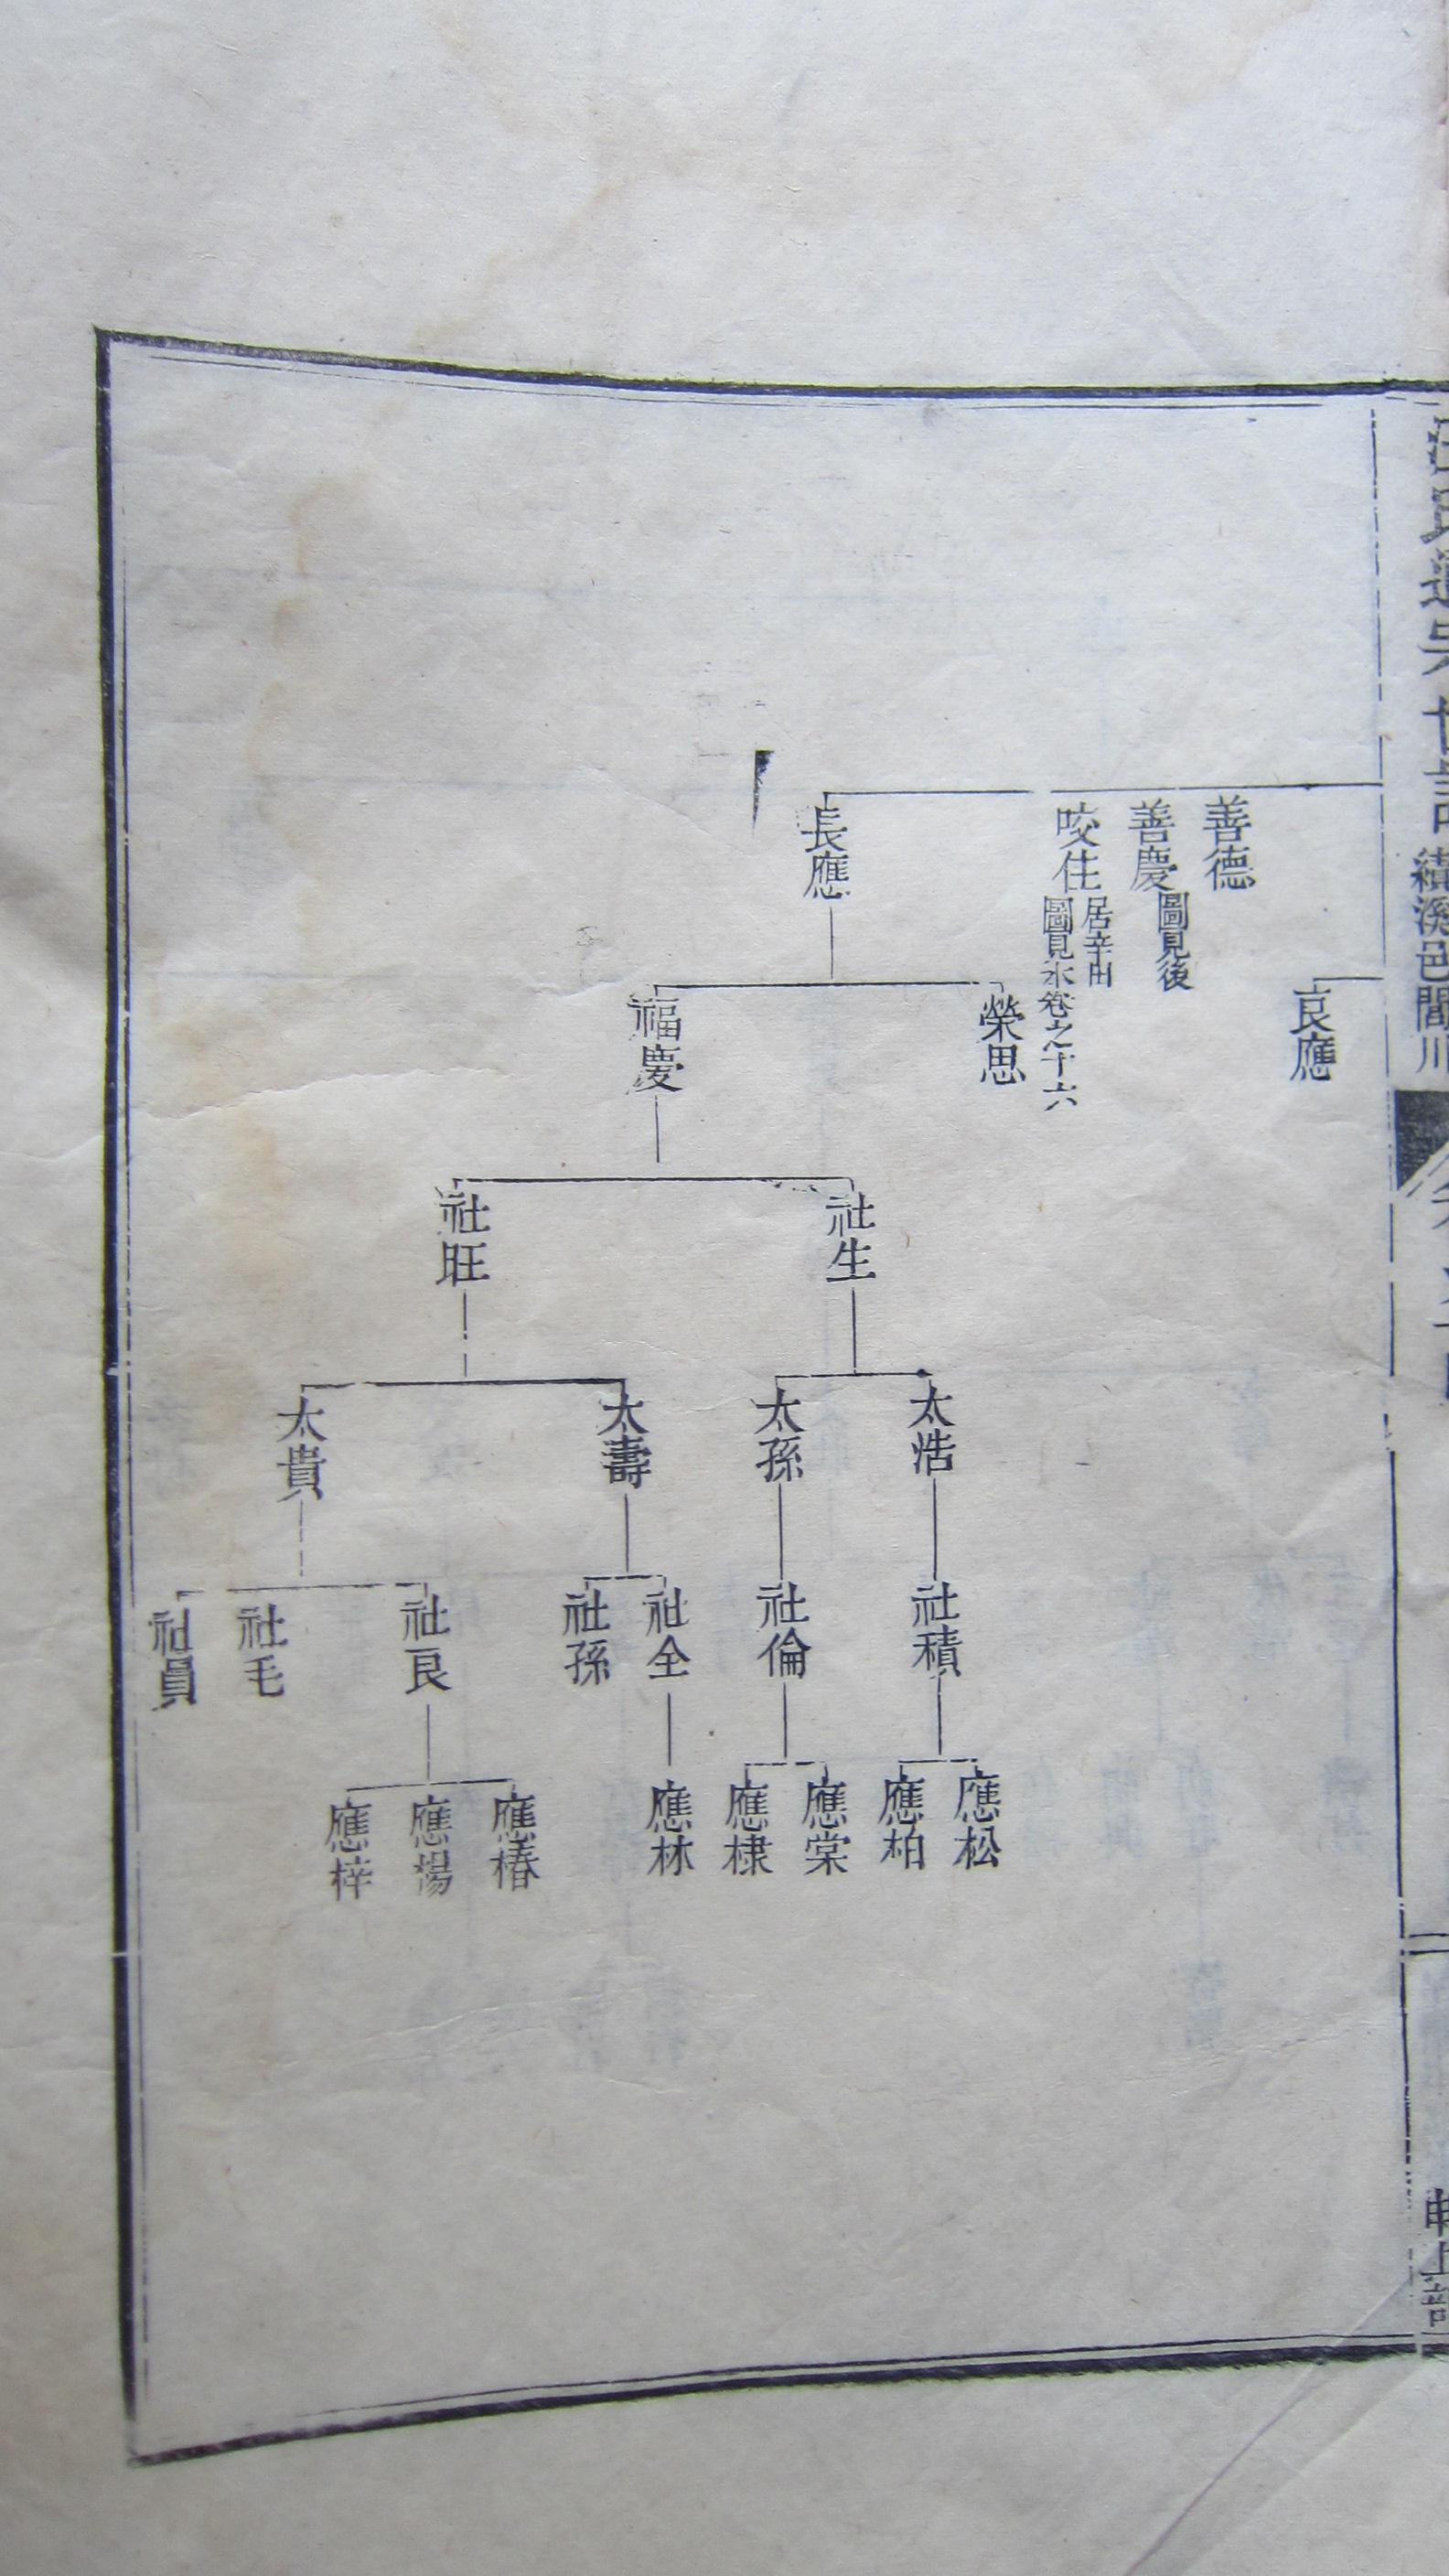 績溪邑間川
良應
善德
善慶
圖見後
咬住
居辛田
圖見木卷之十六
長應
榮思
福慶
社生
社旺
太浩
太孫
太壽
太貴
社積
社倫
社全
社孫
社良
社毛
社員
應松
應柏
應棠
應棣
應林
應椿
應楊
應梓